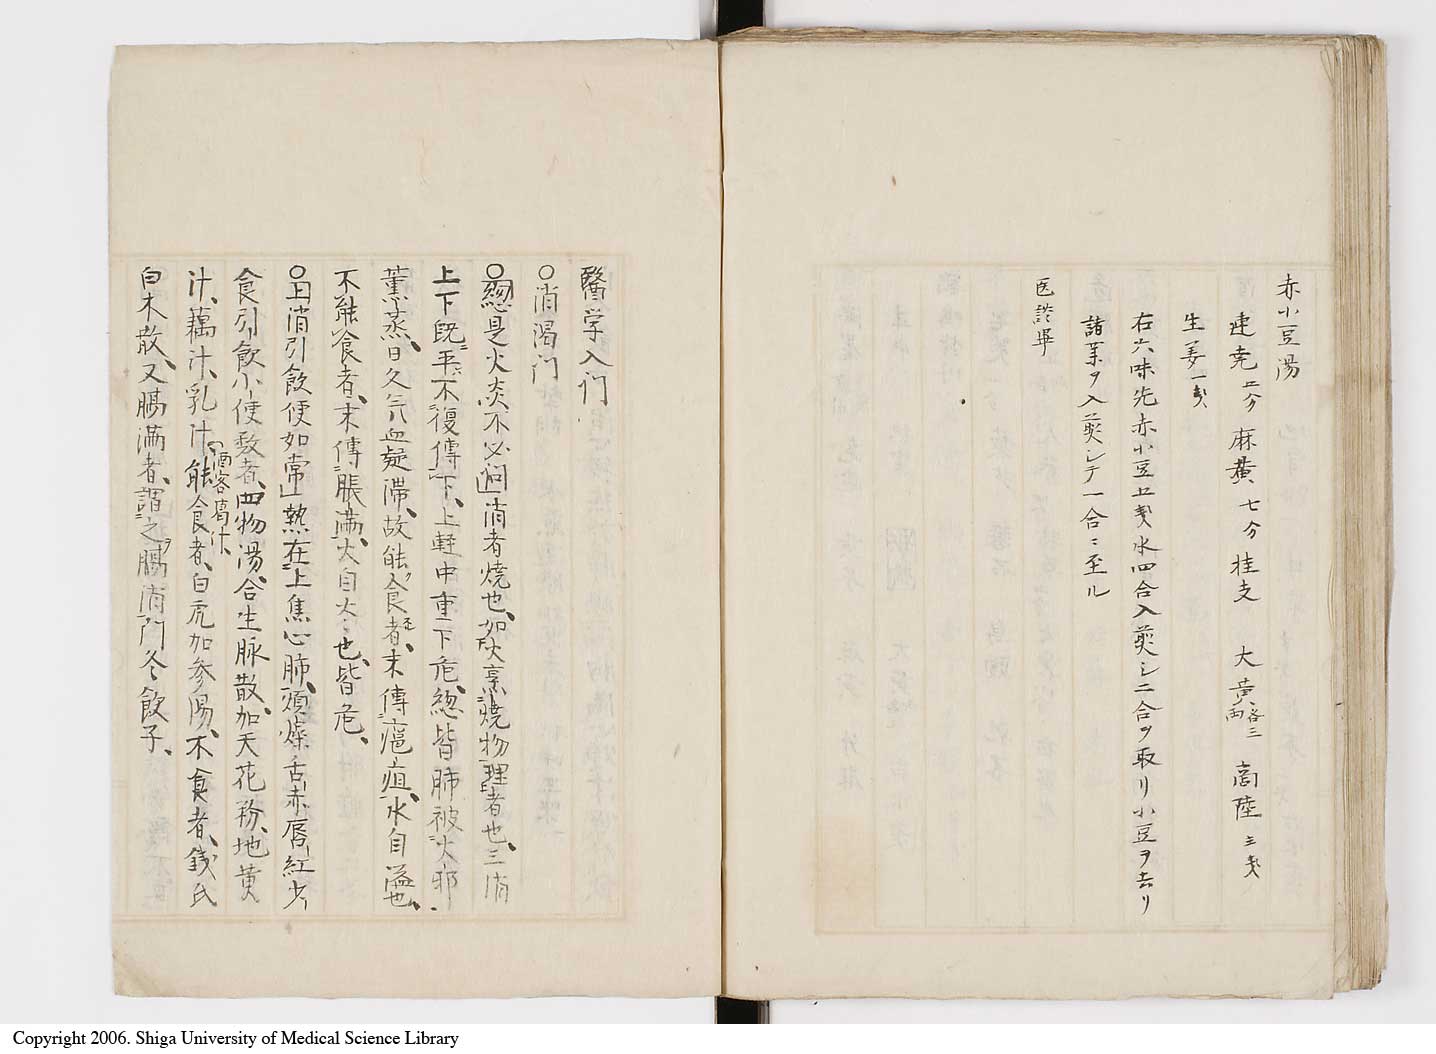 赤小豆湯
連壳五分 麻黄七分 桂支 大黄各三両 商陸三戔
生姜一戔
右六味先赤小豆五戔水四合入煎シ二合ヲ取リ小豆ヲ去リ
諸薬ヲ入煎シテ一合ニ至ル
医談畢
醫学入门
○消渇门
○總是火炎不必问消者燒也、如火烹燒物理者也、三消
上下既平不復傳下、上軽中重下危、總皆肺被火邪
薫蒸日久气血疑滞、故能食者、末傳瘡疽、水自溢也、
不能食者、末傳脹満、火自大也、皆危、
○上消引飲便如常熱在上焦心肺、煩燥舌赤唇紅少
食引飲小便数者、四物湯、合生脉散、加天花粉、地黄
汁、藕汁、乳汁、酒客葛汁、能食者、白虎加参湯、不食者、銭氏
白术散、又膈満者、謂之膈消门冬飲子、
Copyright 2006. Shiga University of Medical Science Library